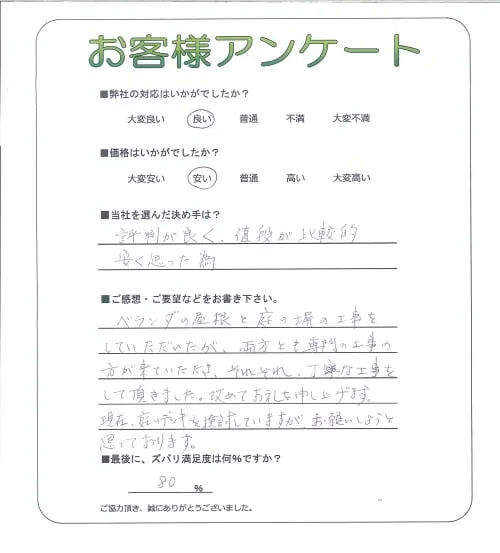 お客様アンケート
■弊社の対応はいかがでしたか？
大変良い 良い 普通 不満 大変不満
■価格はいかがでしたか？
大変安い 安い 普通 高い 大変高い
■当社を選んだ決め手は？
評判が良く、値段が比較的
安く思った為
■ご感想・ご要望などをお書き下さい。
ベランダの屋根と庭の塀の工事を
していただいたが、両方とも専門の工事の
方が来ていただき、それぞれ、丁寧な工事を
して頂きました。改めてお礼を申し上げます。
現在、庭にデッキを検討していますが、お願いしようと
思っております。
■最後に、ズバリ満足度は何%ですか？
80 %
ご協力頂き、誠にありがとうございました。